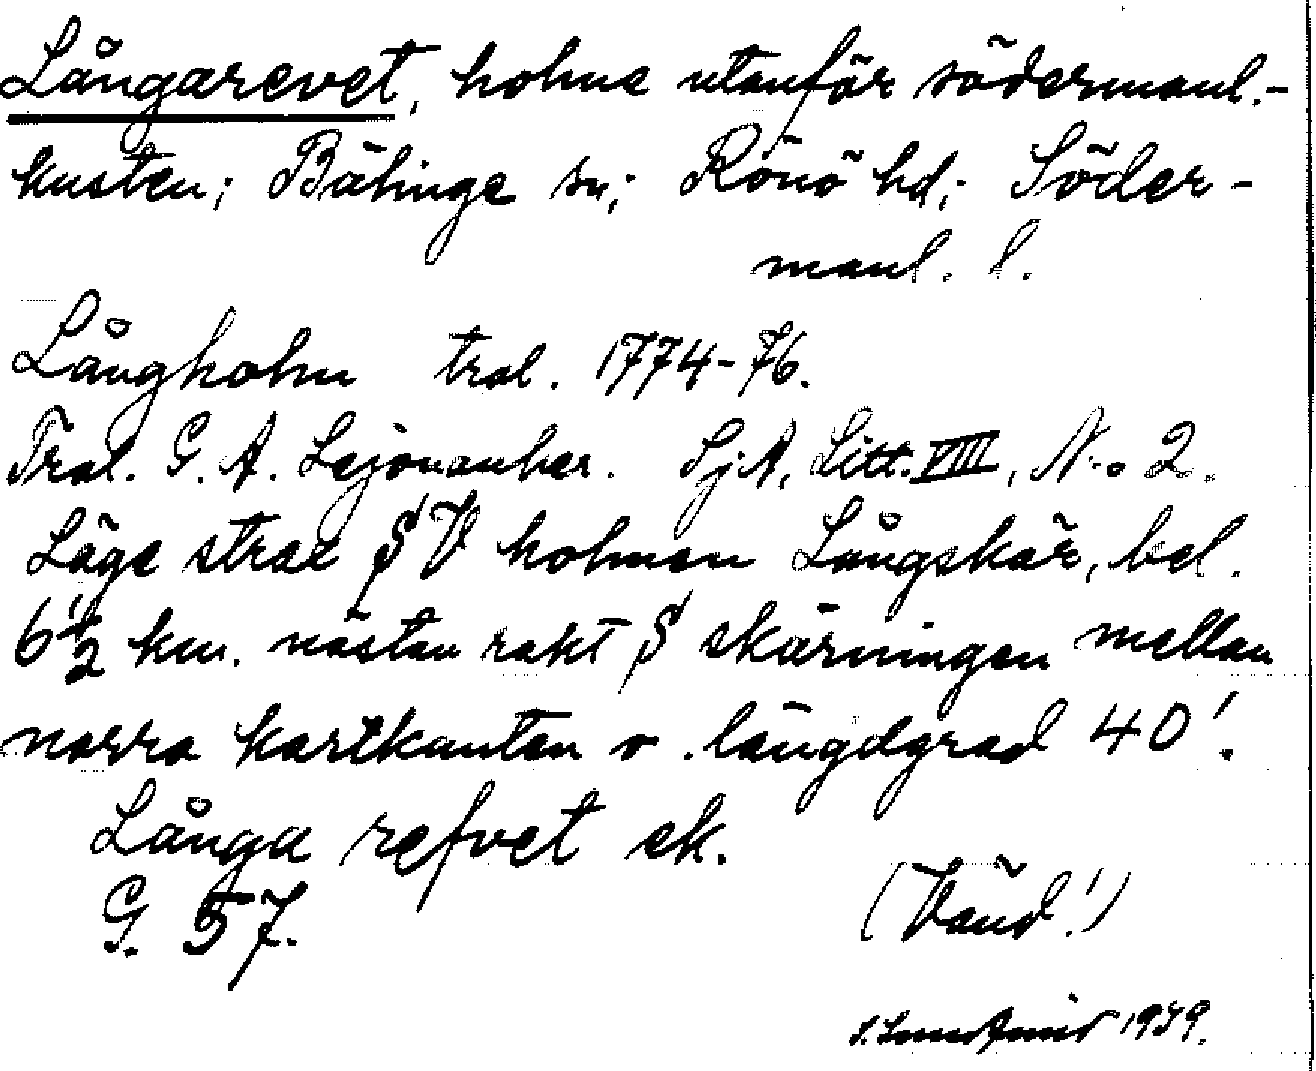 Långarevet, holme utanför södermanl.-
kusten; Bälinge sn; Rönö hd; Söder-
manl. l.
Långholm tral. 1774-76.
Tral. G. A. Lejonanker. SjA, Litt. VIII, N:o 2.
Läge strax S V holmen Långskär, bel.
6 1/2 km. nästan rakt S skärningen mellan
norra kartkanten o. längdgrad 40'.
Långa refvet ek.
G. 57.
(Vänd!)
1939.